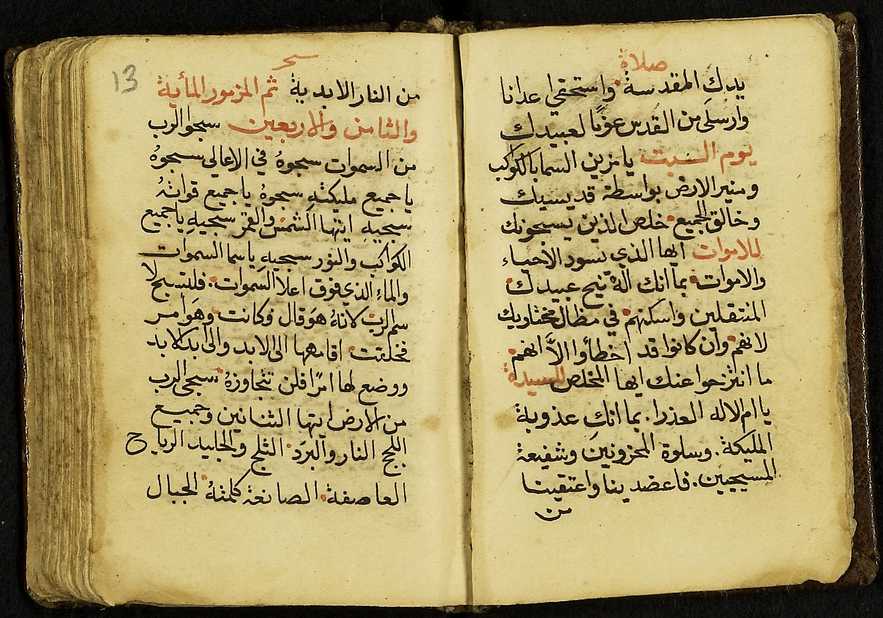 صلاة
يدك المقدسة واسحقي اعدانا
وارسلي من القدس عونًا لعبيدك
يوم السبت يا مزين السما بالكواكب
ومنير الارض بواسطة قديسيك
وخالق الجميع خلص الذين يسبحونك
للاموات ايها الذي يسود الاحياء
والاموات بما انك اله نيح عبيدك
المنتقلين واسكنهم في مظال مختاريك
لانهم وان كانوا قد اخطأوا الاَّ انهم
ما انتزحوا عنك ايها المخلص للسيدة
يا ام الاله العذرا بما انكِ عذوبة
المليكة وسلوة المحزونين وشفيعة
المسيحيين فاعضدينا واعتقينا
من
سحر
13
من النار الابدية ثم المزمور المأية
والثامن والاربعين سبحوا الرب
من السموات سبحوهُ في الاعالي سبحوهُ
يا جميع مليكتهِ سبحوهُ يا جميع قواتهُ
سبحيهِ ايتها الشمس والقمر سبحيهِ يا جميع
الكواكب والنور سبحيهِ يا سما السموات
والماء الذي فوق اعلا السموات فلتسبح لا
سم الرب لانهُ هو قال فكانت وهو امر
فخلقت اقامها الى الابد والى ابد الابد
ووضع لها امرًا فلن تتجاوزهُ سبحي الرب
من الارض ايتها التنانين وجميع
اللجج النار والبرد الثلج والجليد الرياح
العاصفة الصانعة كلمتهُ الجبال